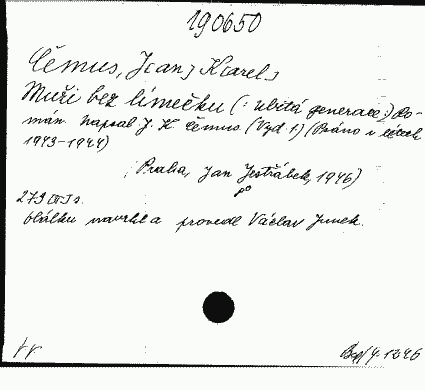 190650
Čěmus, J[an] K[arel]
Muži bez límečku (: ubitá generace.) Ro-
mán. Napsal J. K. Čěmus. (Vyd. 1) (Psáno v létech
1943-1944)
(Praha, Jan Jestřábek, 1946)
8°
279 [IV] s.
Obálku navrhl a provedl Václav Junek.